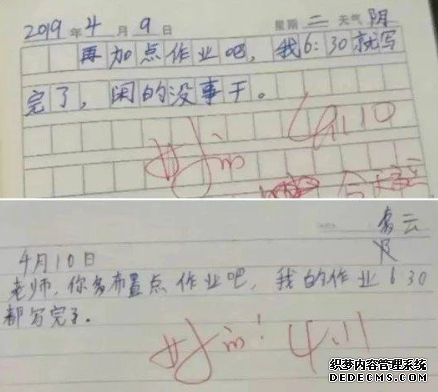 2019年4月9日 星期二 天气阴
再加点作业吧，我6:30就写
完了，闲的没事干。
好的 4.10
多云
4月10日
老师，你多布置点作业吧，我的作业630
都写完了。
好的! 4.11
织梦内容管理系统
DEDECMS.COM